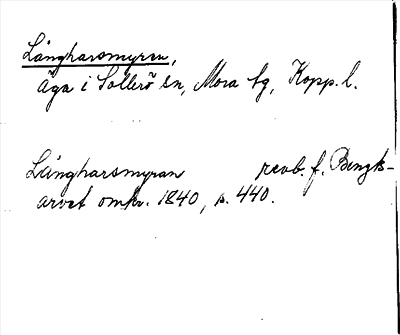 Långharsmyren,
Äga i Sollerö sn, Mora tg, Kopp. l.
Långharsmyran revb. f. Bengts-
arvet omkr. 1840, s. 440.